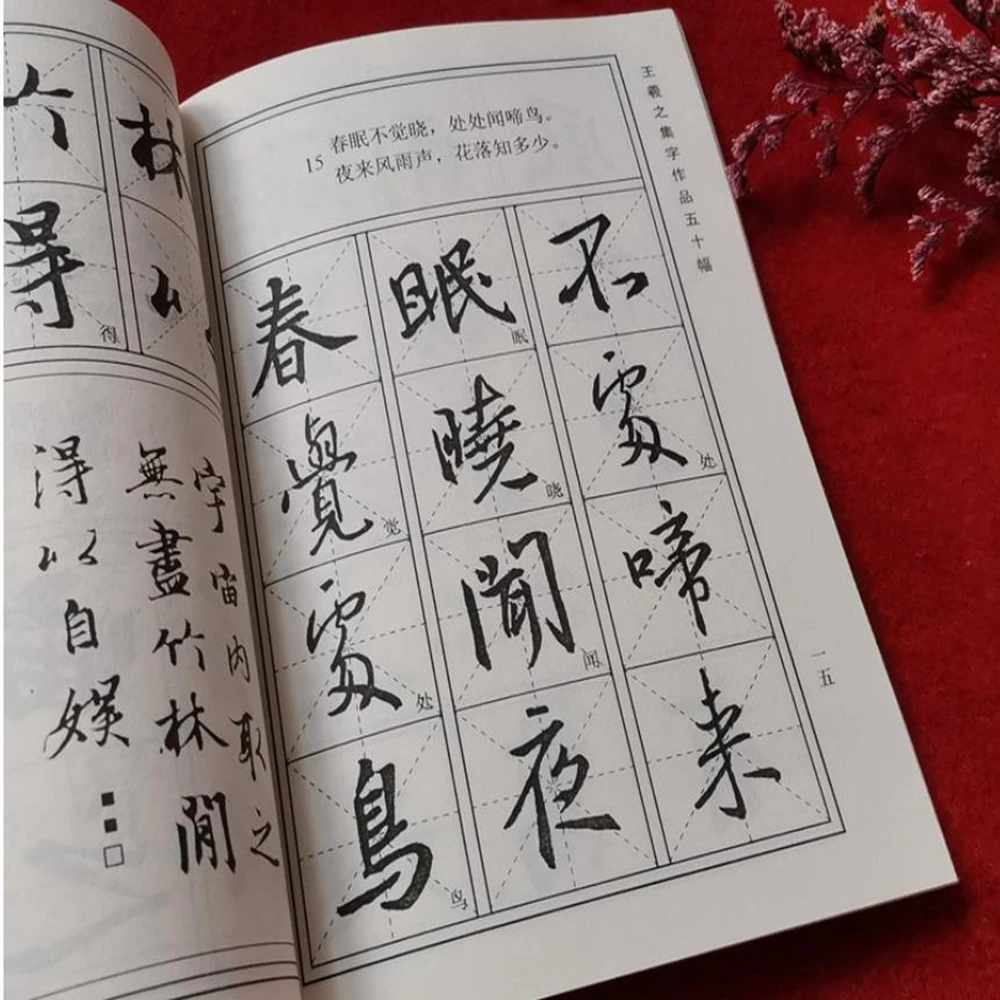 竹 林
得 得 以
宇宙内取之
無盡竹林閒
得以自娱
15 春眠不觉晓，处处闻啼鸟。
夜来风雨声，花落知多少。
春 眠 眠 不
覺 觉 曉 晓 處 处
處 处 聞 闻 啼
鳥 鸟 夜 来
王羲之集字作品五十幅
一五